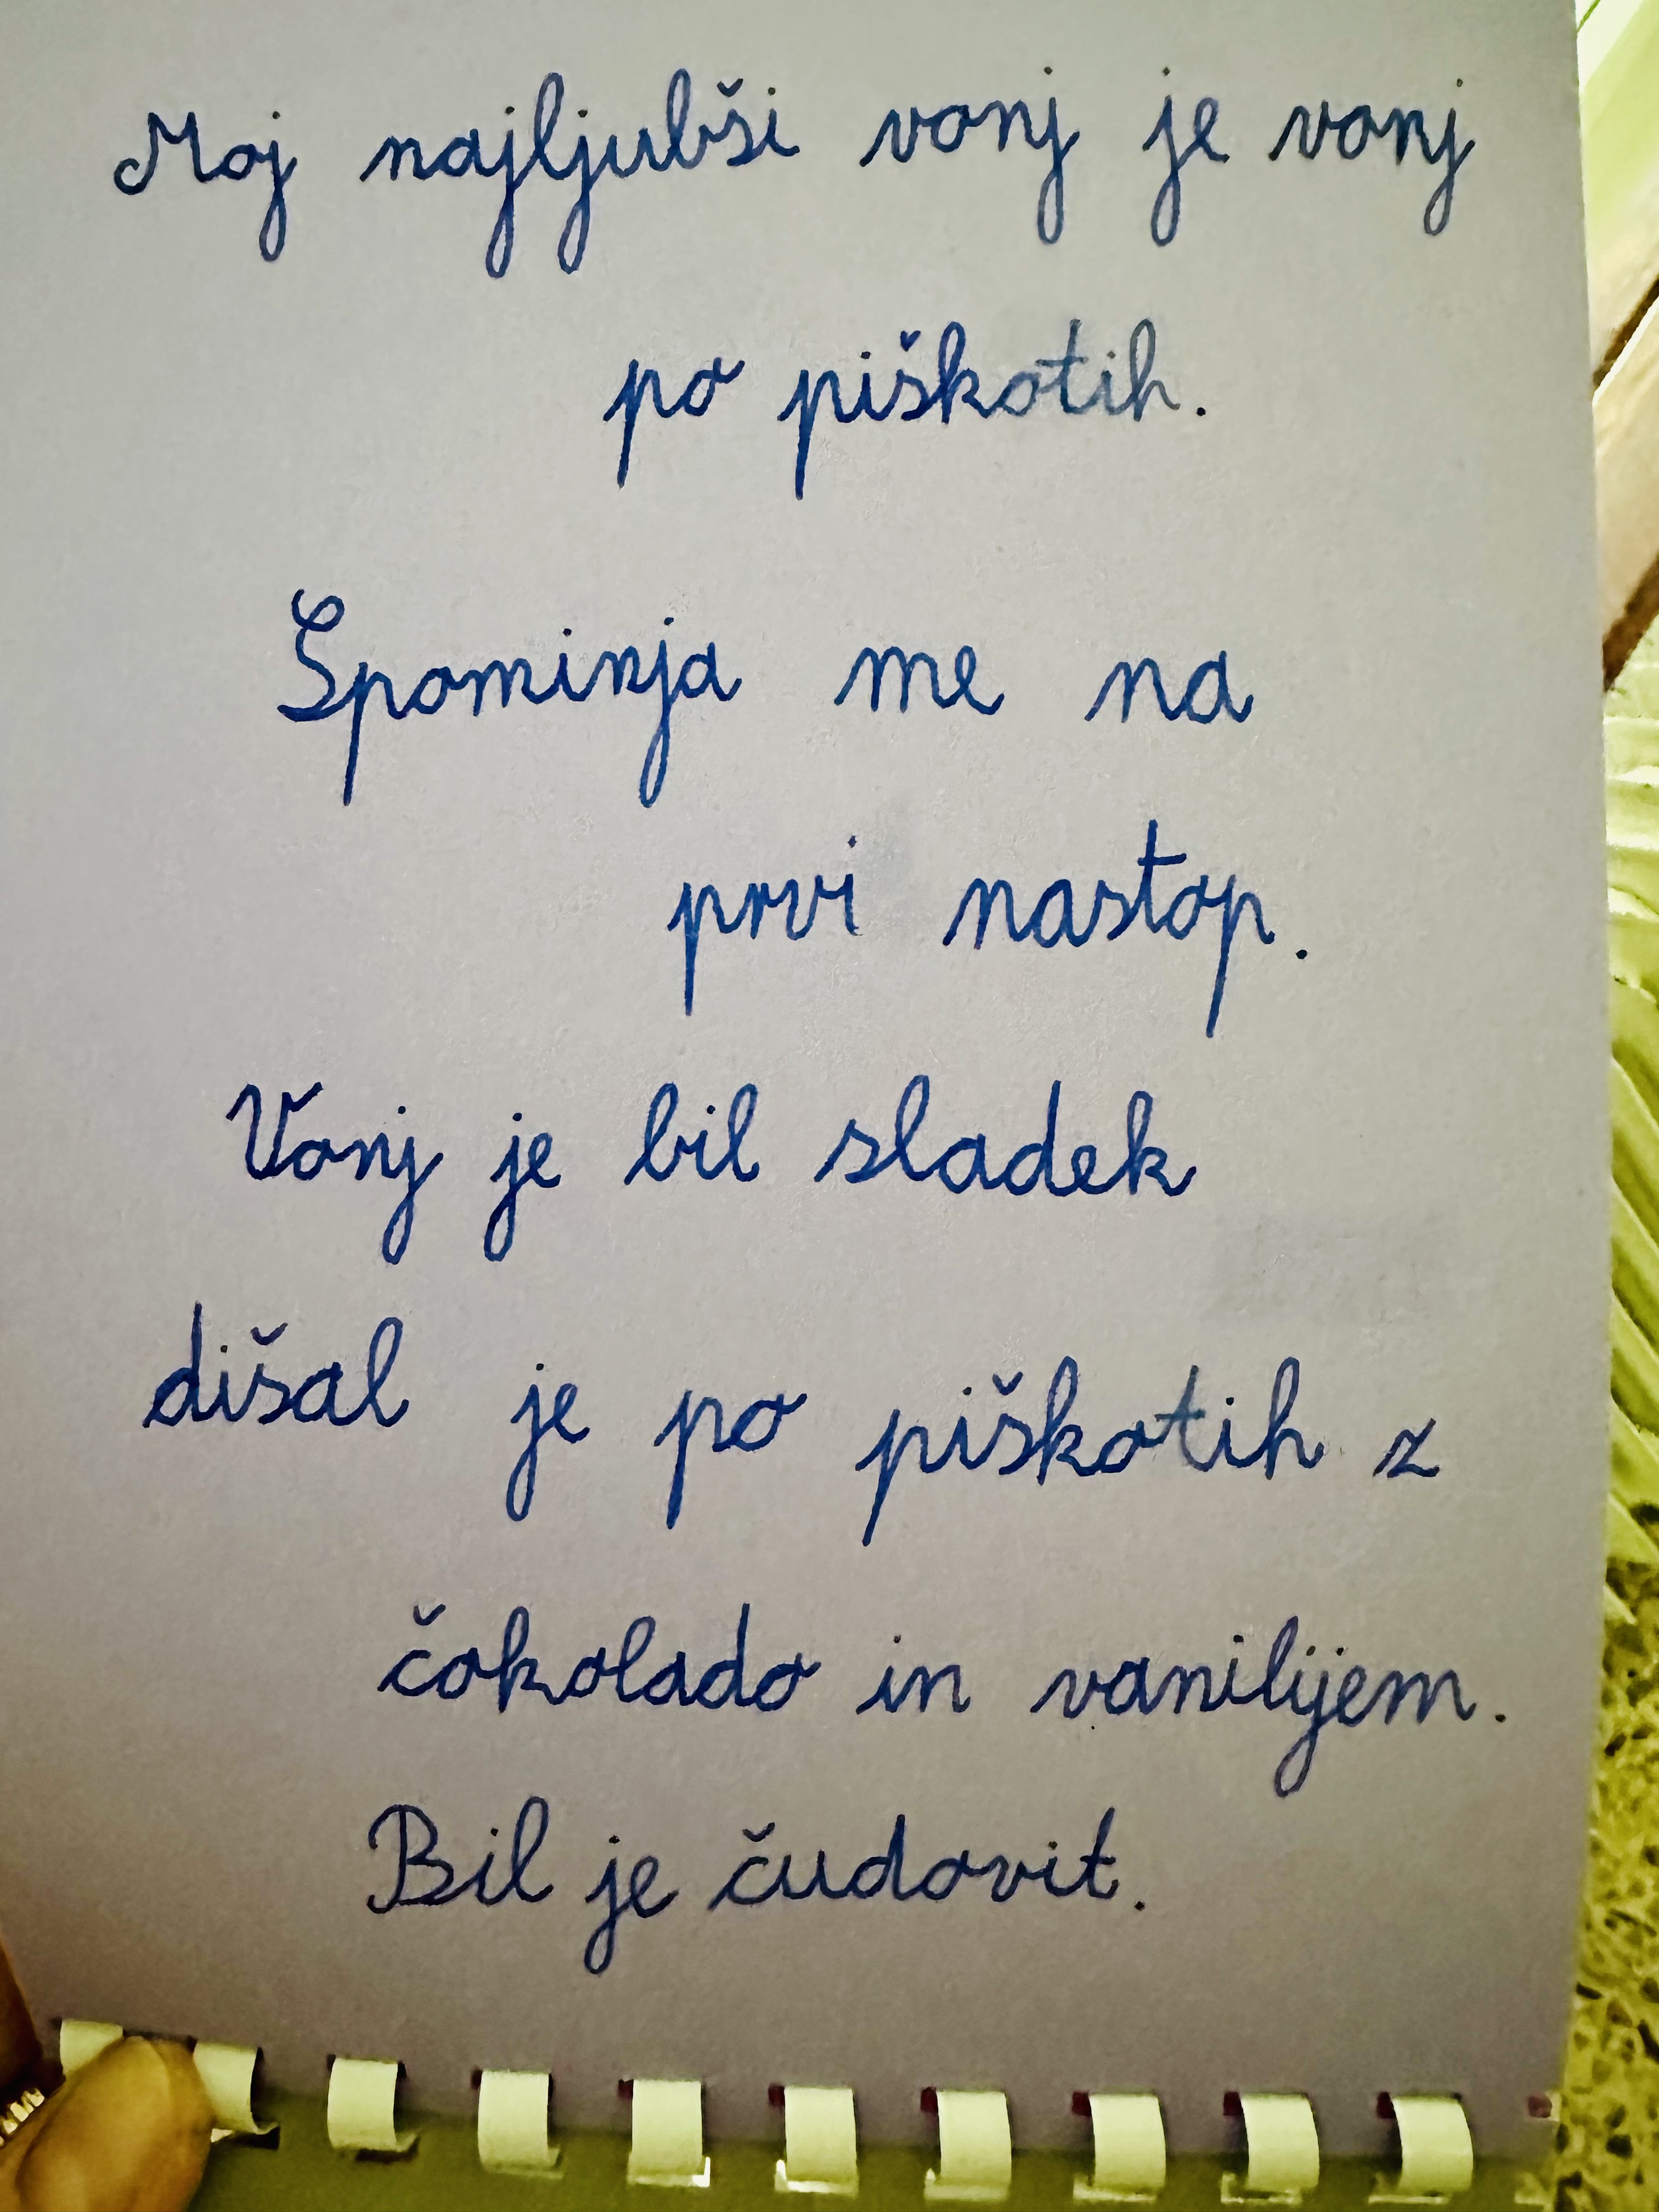 Moj najljubši vonj je vonj
po piškotih.
Spominja me na
prvi nastop.
Vonj je bil sladek
dišal je po piškotih z
čokolado in vanilijem.
Bil je čudovit.